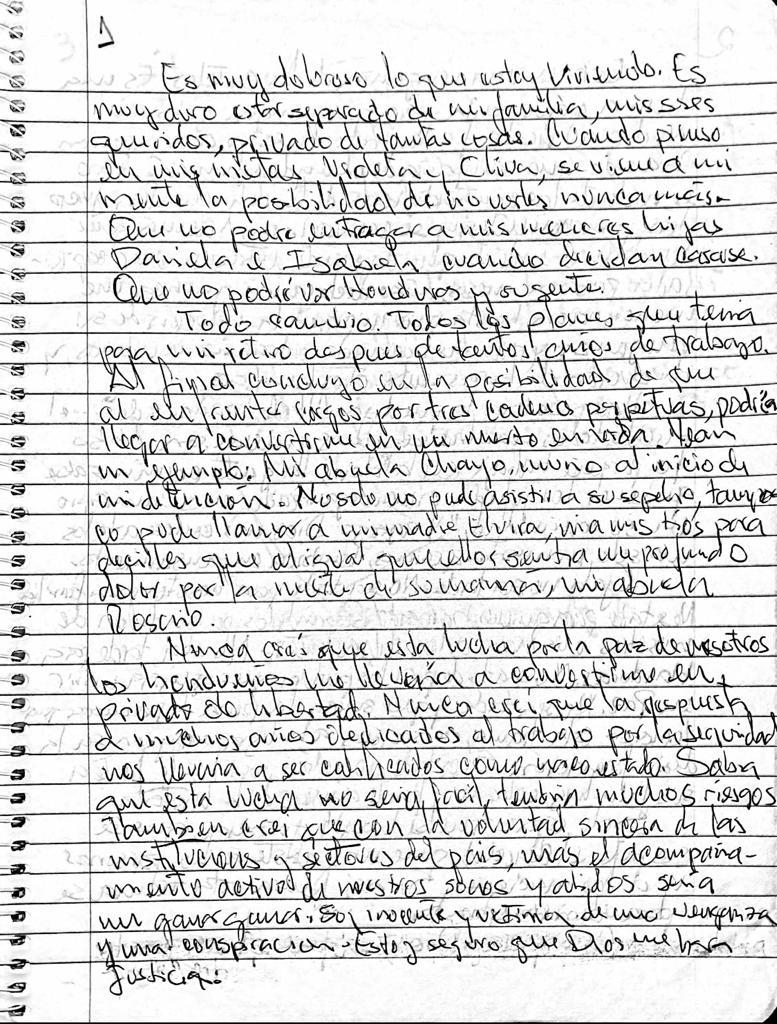 1
Es muy doloroso lo que estoy viviendo. Es
muy duro estar separado de mi familia, mis sres
queridos, privado de tantas cosas. Cuando pienso
en mis nietas Violeta y Oliva, se viene a mi
mente la posibilidad de no verles nunca más.
Que no podre entragar a mis menores hijas
Daniela e Isabela cuando decidan casarse.
Que no podré ver Honduras y su gente.
Todo cambio. Todos los planes que tenia
para mi retiro despues de tantos años de trabajo.
Al final concluyo en la posibilidad de que
al enfrentar cargos por tres cadenas perpetuas, podría
llegar a convertirme en un muerto en vida. Vean
un ejemplo: Mi abuela Chayo, murio al inicio de
mi detención. No solo no pude asistir a su sepelio, tampo
co pude llamar a mi madre Elvira, ni a mis tios para
decirles que al igual que ellos sentia un profundo
dolor por la muerte de su mamá, mi abuela
Rosario.
Nunca creí que esta lucha por la paz de nosotros
los hondureños me llevaría a convertirme en
privado de libertad. Nunca creí que la respuesta
a muchos años dedicados al trabajo por la seguridad
nos llevaria a ser calificados como narco estado. Sabia
que esta lucha no seria facil, tendria muchos riesgos
Tambien crei que con la voluntad sincera de las
instituciones y sectores del país, más el acompaña-
miento activo de nuestros socios y aliados seria
un ganar ganar. Soy inocente y victima de una venganza
y una conspiracion. Estoy seguro que Dios me hara
justicia.